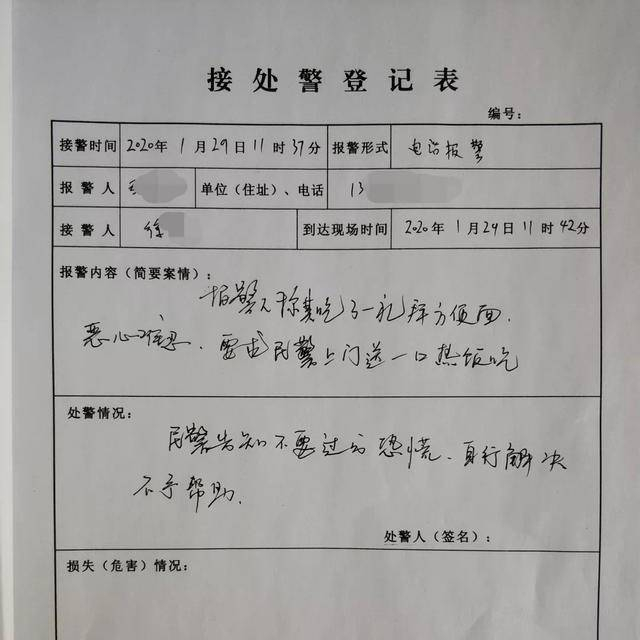 接处警登记表
编号：
接警时间 2020年1月29日11时37分 报警形式 电话报警
报警人 单位（住址）、电话 13
接警人 徐 到达现场时间 2020年1月29日11时42分
报警内容（简要案情）：
报警人称其吃了一礼拜方便面.
恶心难忍、要求民警上门送一口热饭吃
处警情况：
民警告知不要过分恐慌、自行解决
不予帮助.
处警人（签名）：
损失（危害）情况：